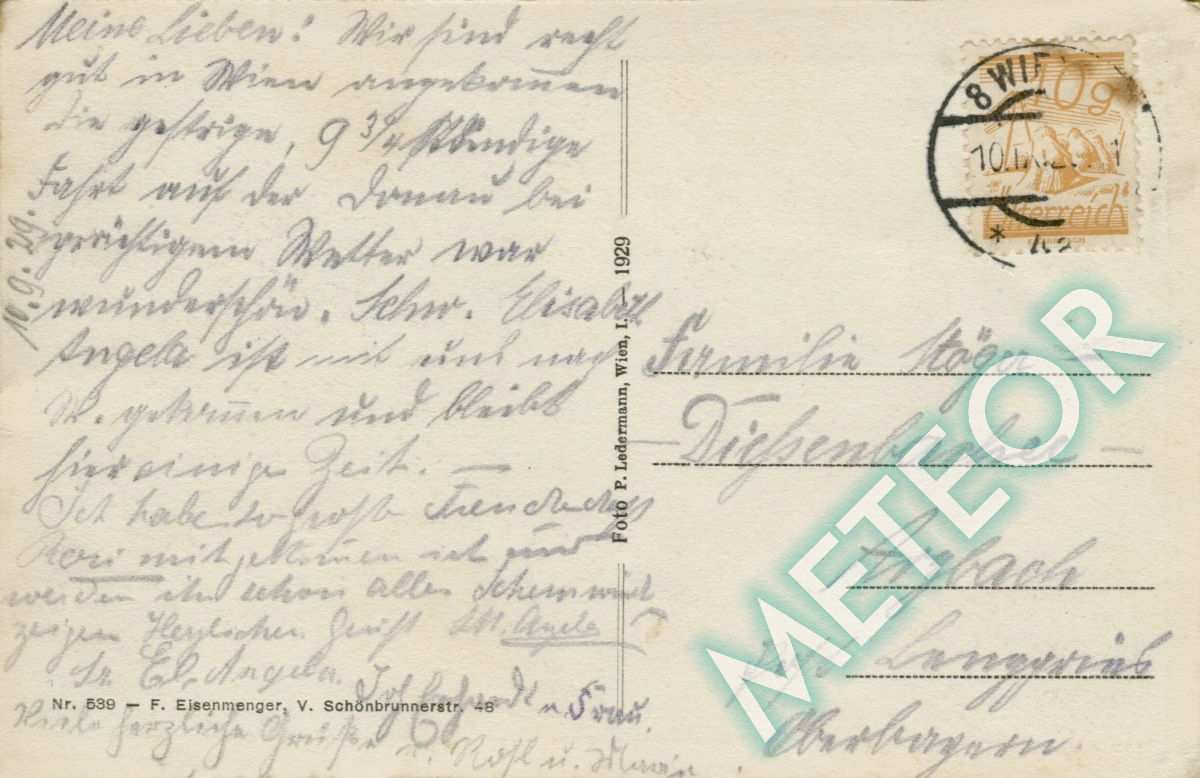 Meine Lieben! Wir sind recht
gut in Wien angekommen
die gestrige, 9 3/4 stündige
Fahrt auf der Donau bei
prächtigem Wetter war
wunderschön. Schw. Elisabeth
Angela ist mit uns nach
W. gekommen und bleibt
hier einige Zeit. —
Ich habe so große Freude dass
Rosi mitgekommen ist und
werden ihr schon alles Schöne
zeigen Herzlichen Gruß Angela
Sr. El. Angela.
u. Frau.
Viele herzliche Grüße v. Rosl u. Marie
10.9.29.
Nr. 539 — F. Eisenmenger, V. Schönbrunnerstr. 48
Foto P. Ledermann, Wien, I. — 1929
8 WIE
10.IX.29
10g
Österreich
Familie Stöger —
— Dießenbacher —
Arzbach
Lenggries
Oberbayern.
METEOR